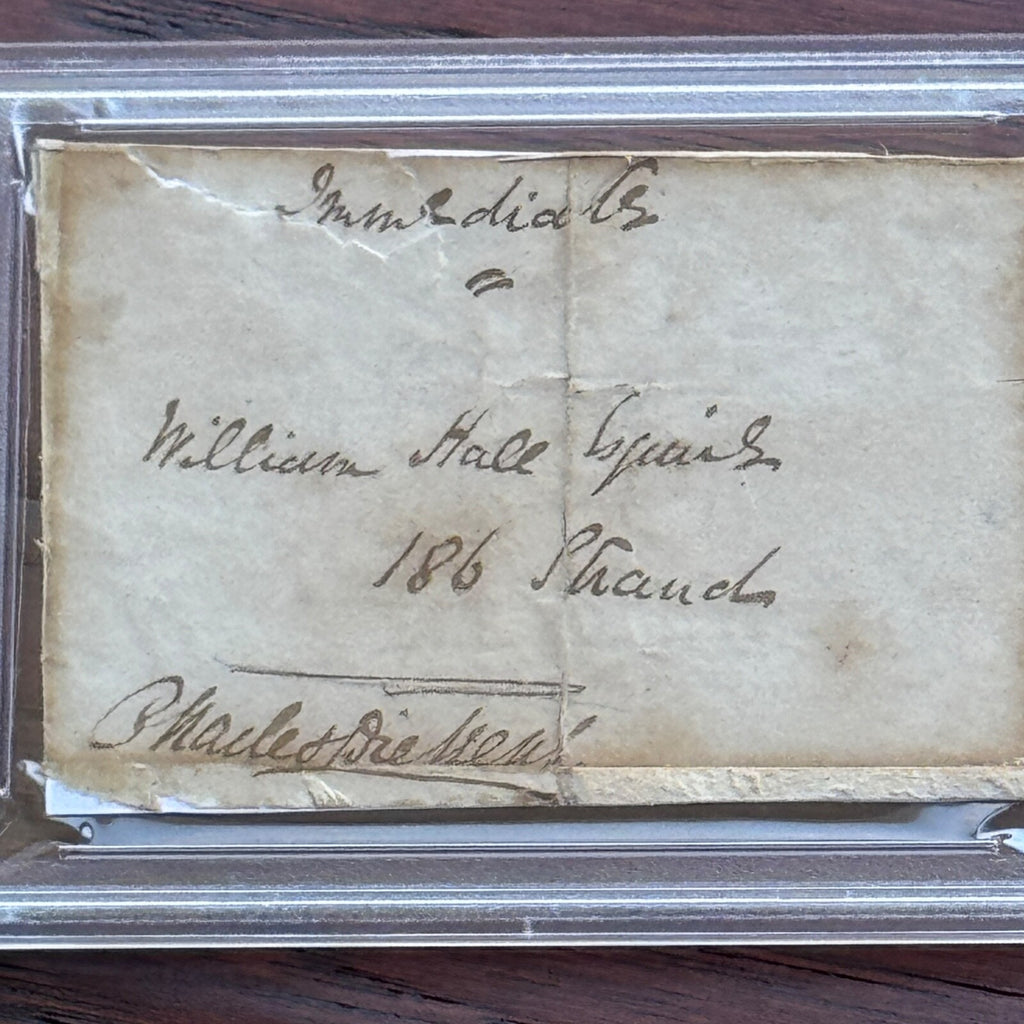 Immediate
William Hall Esquire
186 Strand
Charles Dickens